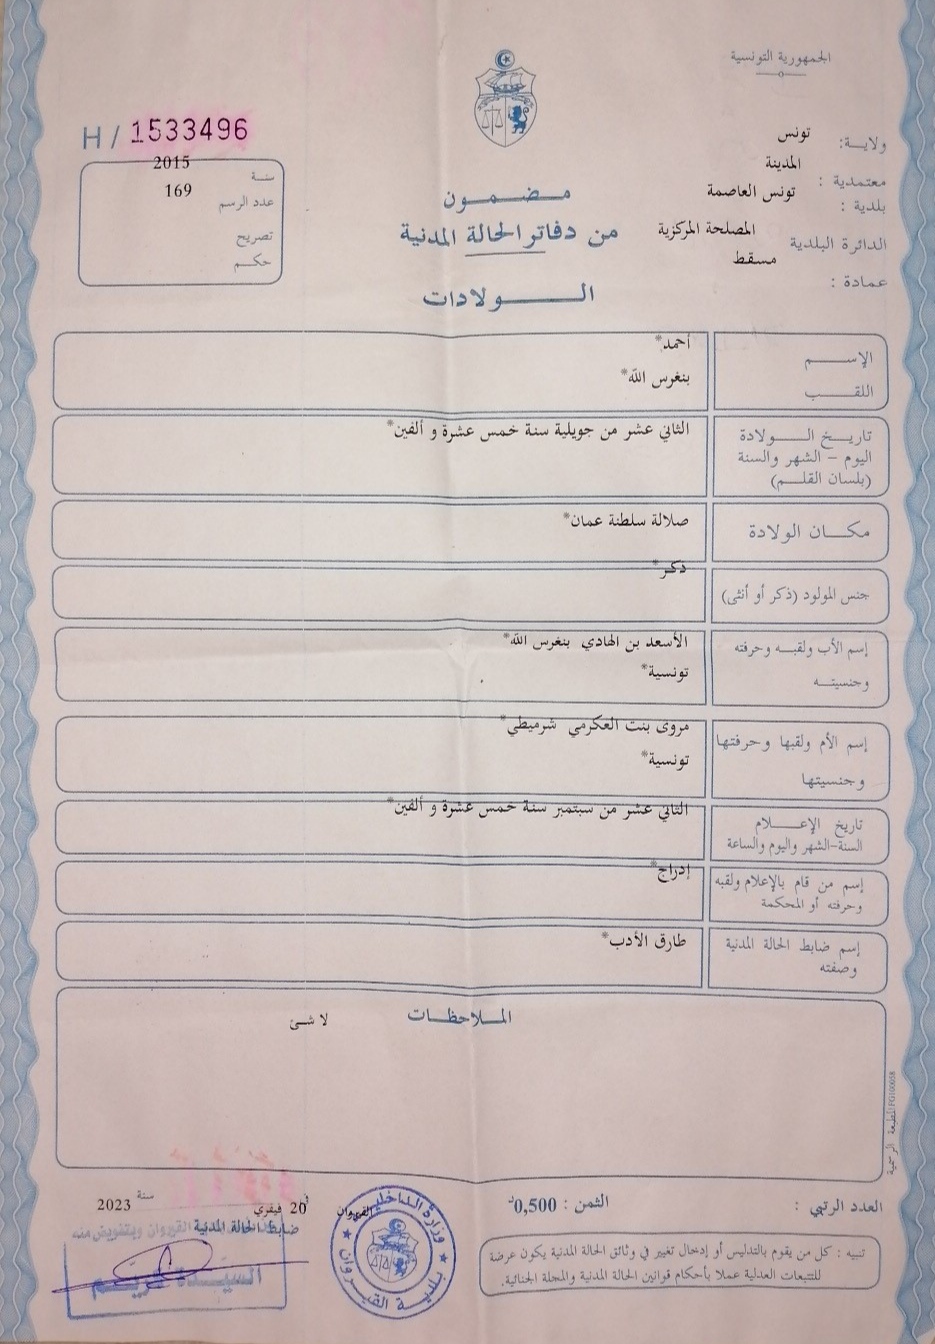 الجمهورية التونسية
H / 1533496
ولاية: تونس
معتمدية : المدينة
بلدية : تونس العاصمة
الدائرة البلدية المصلحة المركزية
عمادة : مسقط
سنة 2015
عدد الرسم 169
تصريح
حكم
مضمون
من دفاتر الحالة المدنية
الولادات
الإسم أحمد*
اللقب بنغرس الله*
تاريخ الولادة الثاني عشر من جويلية سنة خمس عشرة و ألفين*
اليوم - الشهر والسنة
(بلسان القلم)
مكان الولادة صلالة سلطنة عمان*
جنس المولود (ذكر أو أنثى) ذكر*
إسم الأب ولقبه وحرفته الأسعد بن الهادي بنغرس الله*
وجنسيته تونسية*
إسم الأم ولقبها وحرفتها مروى بنت العكرمي شرميطي*
وجنسيتها تونسية*
تاريخ الإعلام الثاني عشر من سبتمبر سنة خمس عشرة و ألفين*
السنة-الشهر واليوم والساعة
إسم من قام بالإعلام ولقبه إدراج*
وحرفته أو المحكمة
إسم ضابط الحالة المدنية طارق الأدب*
وصفته
الملاحظات
لا شئ
المطبعة الرسمية
العدد الرتبي :
الثمن : 0,500د
القيروان 20 فيفري سنة 2023
ضابط الحالة المدنية
القيروان وبتفويض منه
السيدة
وزارة الداخلية
بلدية القيروان
تنبيه : كل من يقوم بالتدليس أو إدخال تغيير في وثائق الحالة المدنية يكون عرضة
للتتبعات العدلية عملا بأحكام قوانين الحالة المدنية والمجلة الجنائية.